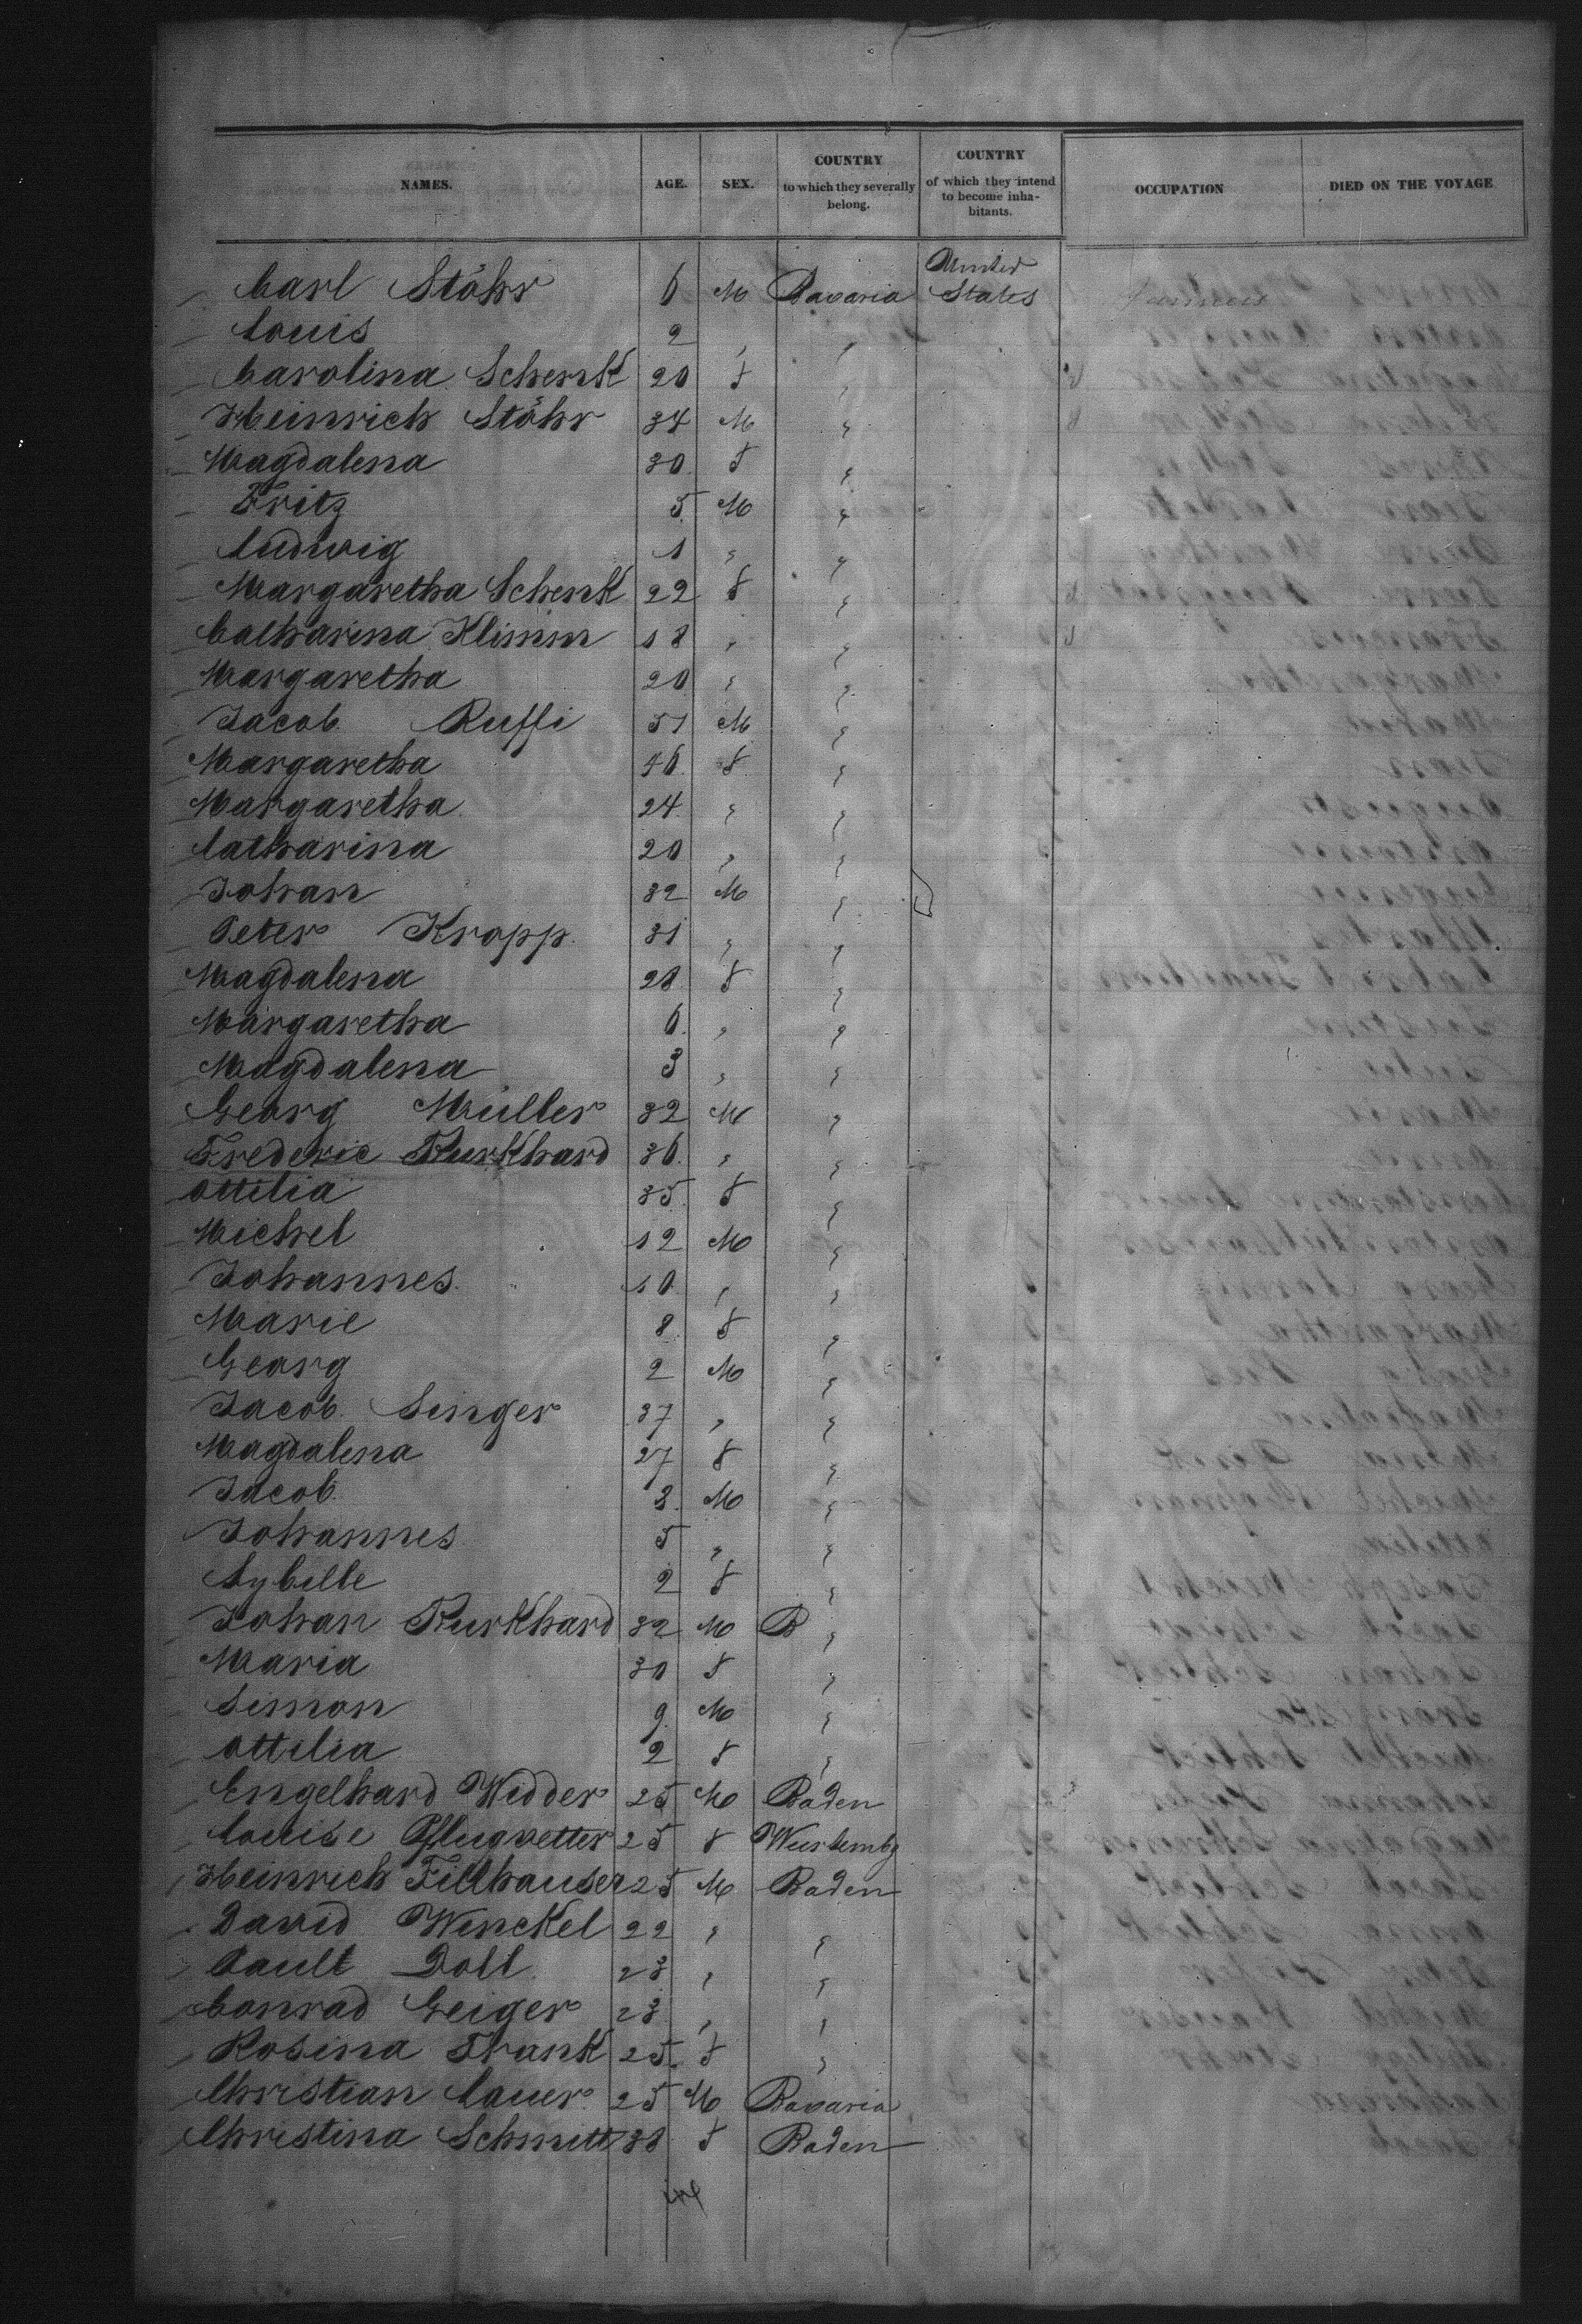 NAMES. AGE. SEX. COUNTRY to which they severally belong. COUNTRY of which they intend to become inhabitants. OCCUPATION DIED ON THE VOYAGE
Carl Stöhr 6 M Bavaria United States
Louis 2 " "
Carolina Schenk 20 F "
Heinrich Stöhr 34 M "
Magdalena 30 F "
Fritz 5 M "
Ludwig 1 " "
Margaretha Schenk 22 F "
Catharina Klimm 18 " "
Margaretha 20 " "
Jacob Ruffi 51 M "
Margaretha 46 F "
Margaretha 24 " "
Catharina 20 " "
Johan 32 M "
Peter Kropp 31 " "
Magdalena 28 F "
Margaretha 6 " "
Magdalena 3 " "
Georg Müller 32 M "
Frederic Burkhard 36 " "
Ottilia 35 F "
Michel 12 M "
Johannes 10 " "
Marie 8 F "
Georg 2 M "
Jacob Singer 37 " "
Magdalena 27 F "
Jacob 8 M "
Johannes 5 " "
Sybille 2 F "
Johan Burkhard 32 M B "
Maria 30 F "
Simon 9 M "
Ottilia 2 F "
Engelhard Widder 25 M Baden
Louise Pflugvetter 25 F Wurtembg
Heinrich Fillhauser 25 M Baden
David Winckel 22 " "
Pault Doll 23 " "
Conrad Geiger 23 " "
Rosina Frank 25 F "
Christian Lauer 25 M Bavaria
Christina Schmitt 38 F Baden